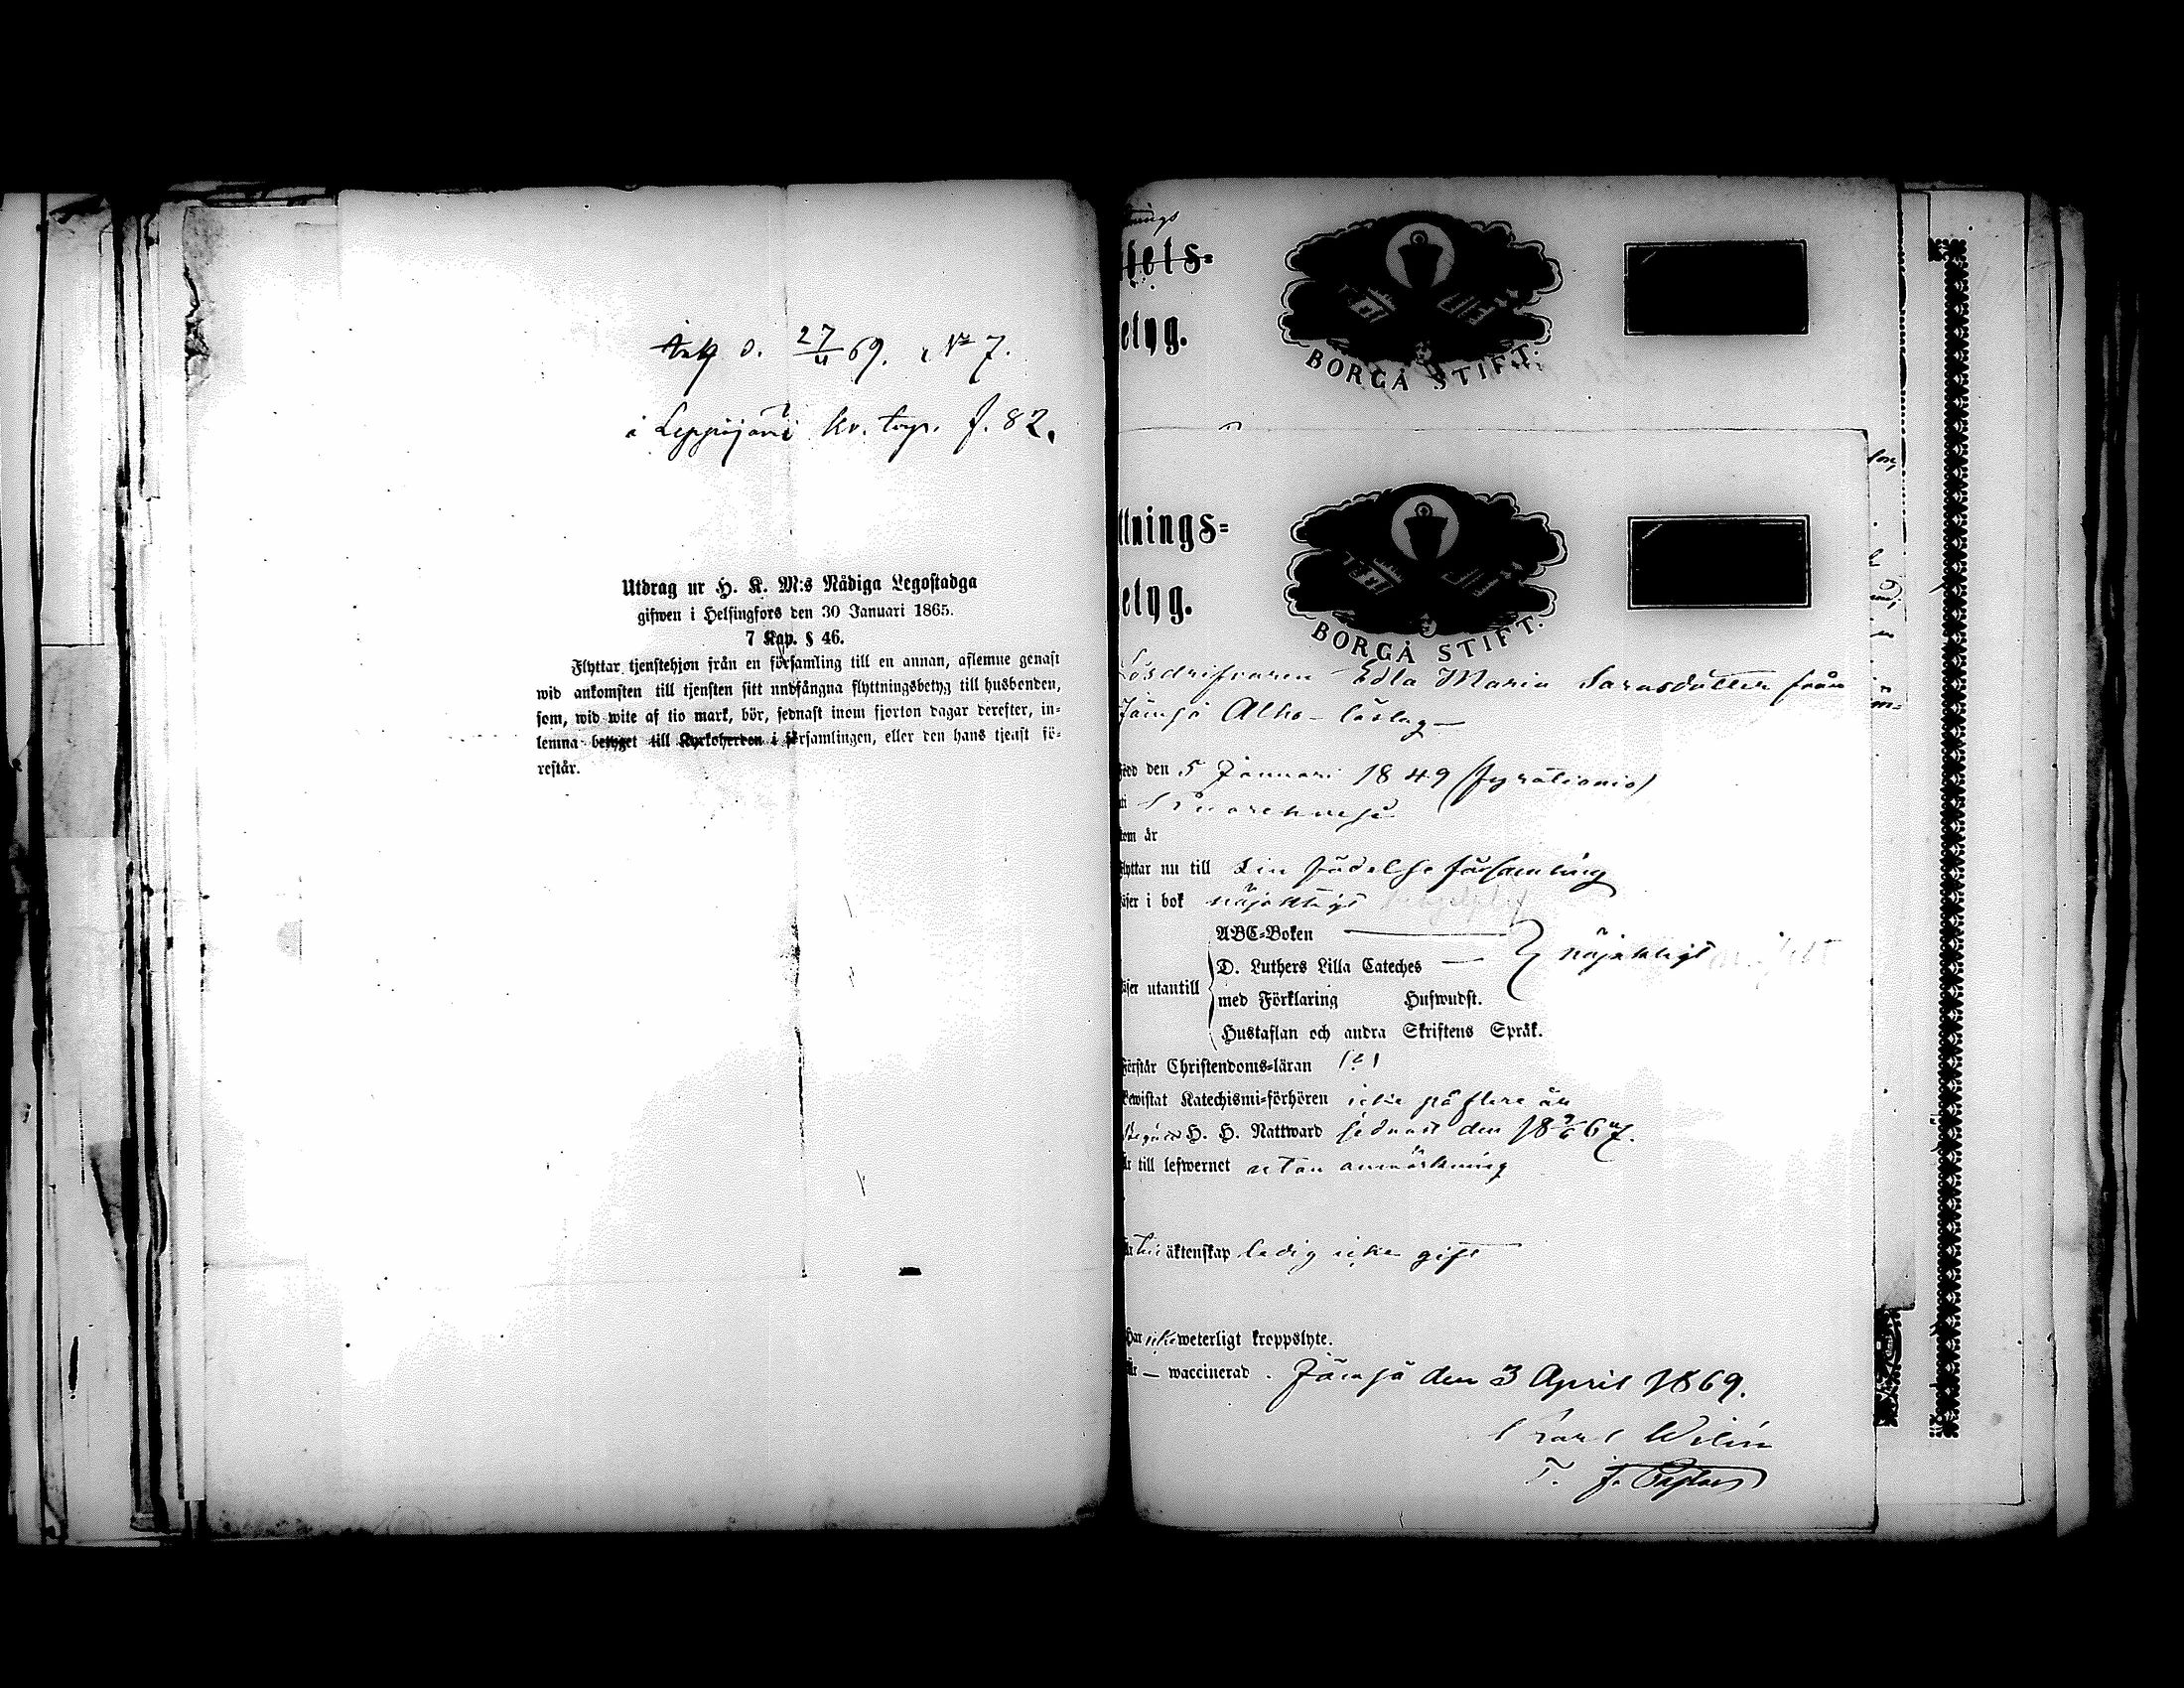 d. 27/4 69. N:o 7.
i Leppäjärvi f. 82.
Utdrag ur H. K. M:s Nådiga Legostadga
gifwen i Helsingfors den 30 Januari 1865.
7 Kap. § 46.
Flyttar tjenstehjon från en församling till en annan, aflemne genast
wid ankomsten till tjensten sitt undfångna flyttningsbetyg till husbonden,
som, wid wite af tio mark, bör, sednast inom fjorton dagar derefter, in-
lemna betyget till Kyrkoherden i församlingen, eller den hans tjenst fö-
reståt.
sels-
etyg.
BORGÅ STIFT.
ttnings-
etyg.
BORGÅ STIFT.
Lösdrifvaren Edla Maria Sarasdotter från
Jämsä Alho-löslag
född den 5 Januari 1849 (fyrationio)
i
som är
flyttar nu till sin födelse församling
läser i bok nöjaktigt
ABC-Boken
D. Luthers Lilla Cateches nöjaktigt
läser utantill
med Förklaring Hufwudst.
Hustaflan och andra Skriftens Språk.
Förstår Christendoms-läran
bewistat Katechismi-förhören icke på flere år
Begått H. H. Nattward sednast den 18 9/6 67.
är till lefwernet utan anmärkning
till äktenskap ledig icke gift
Har icke weterligt kroppslyte.
Är — waccinerad. Jämsä den 3 April 1869.
Karl Welin
T. f. Pastor